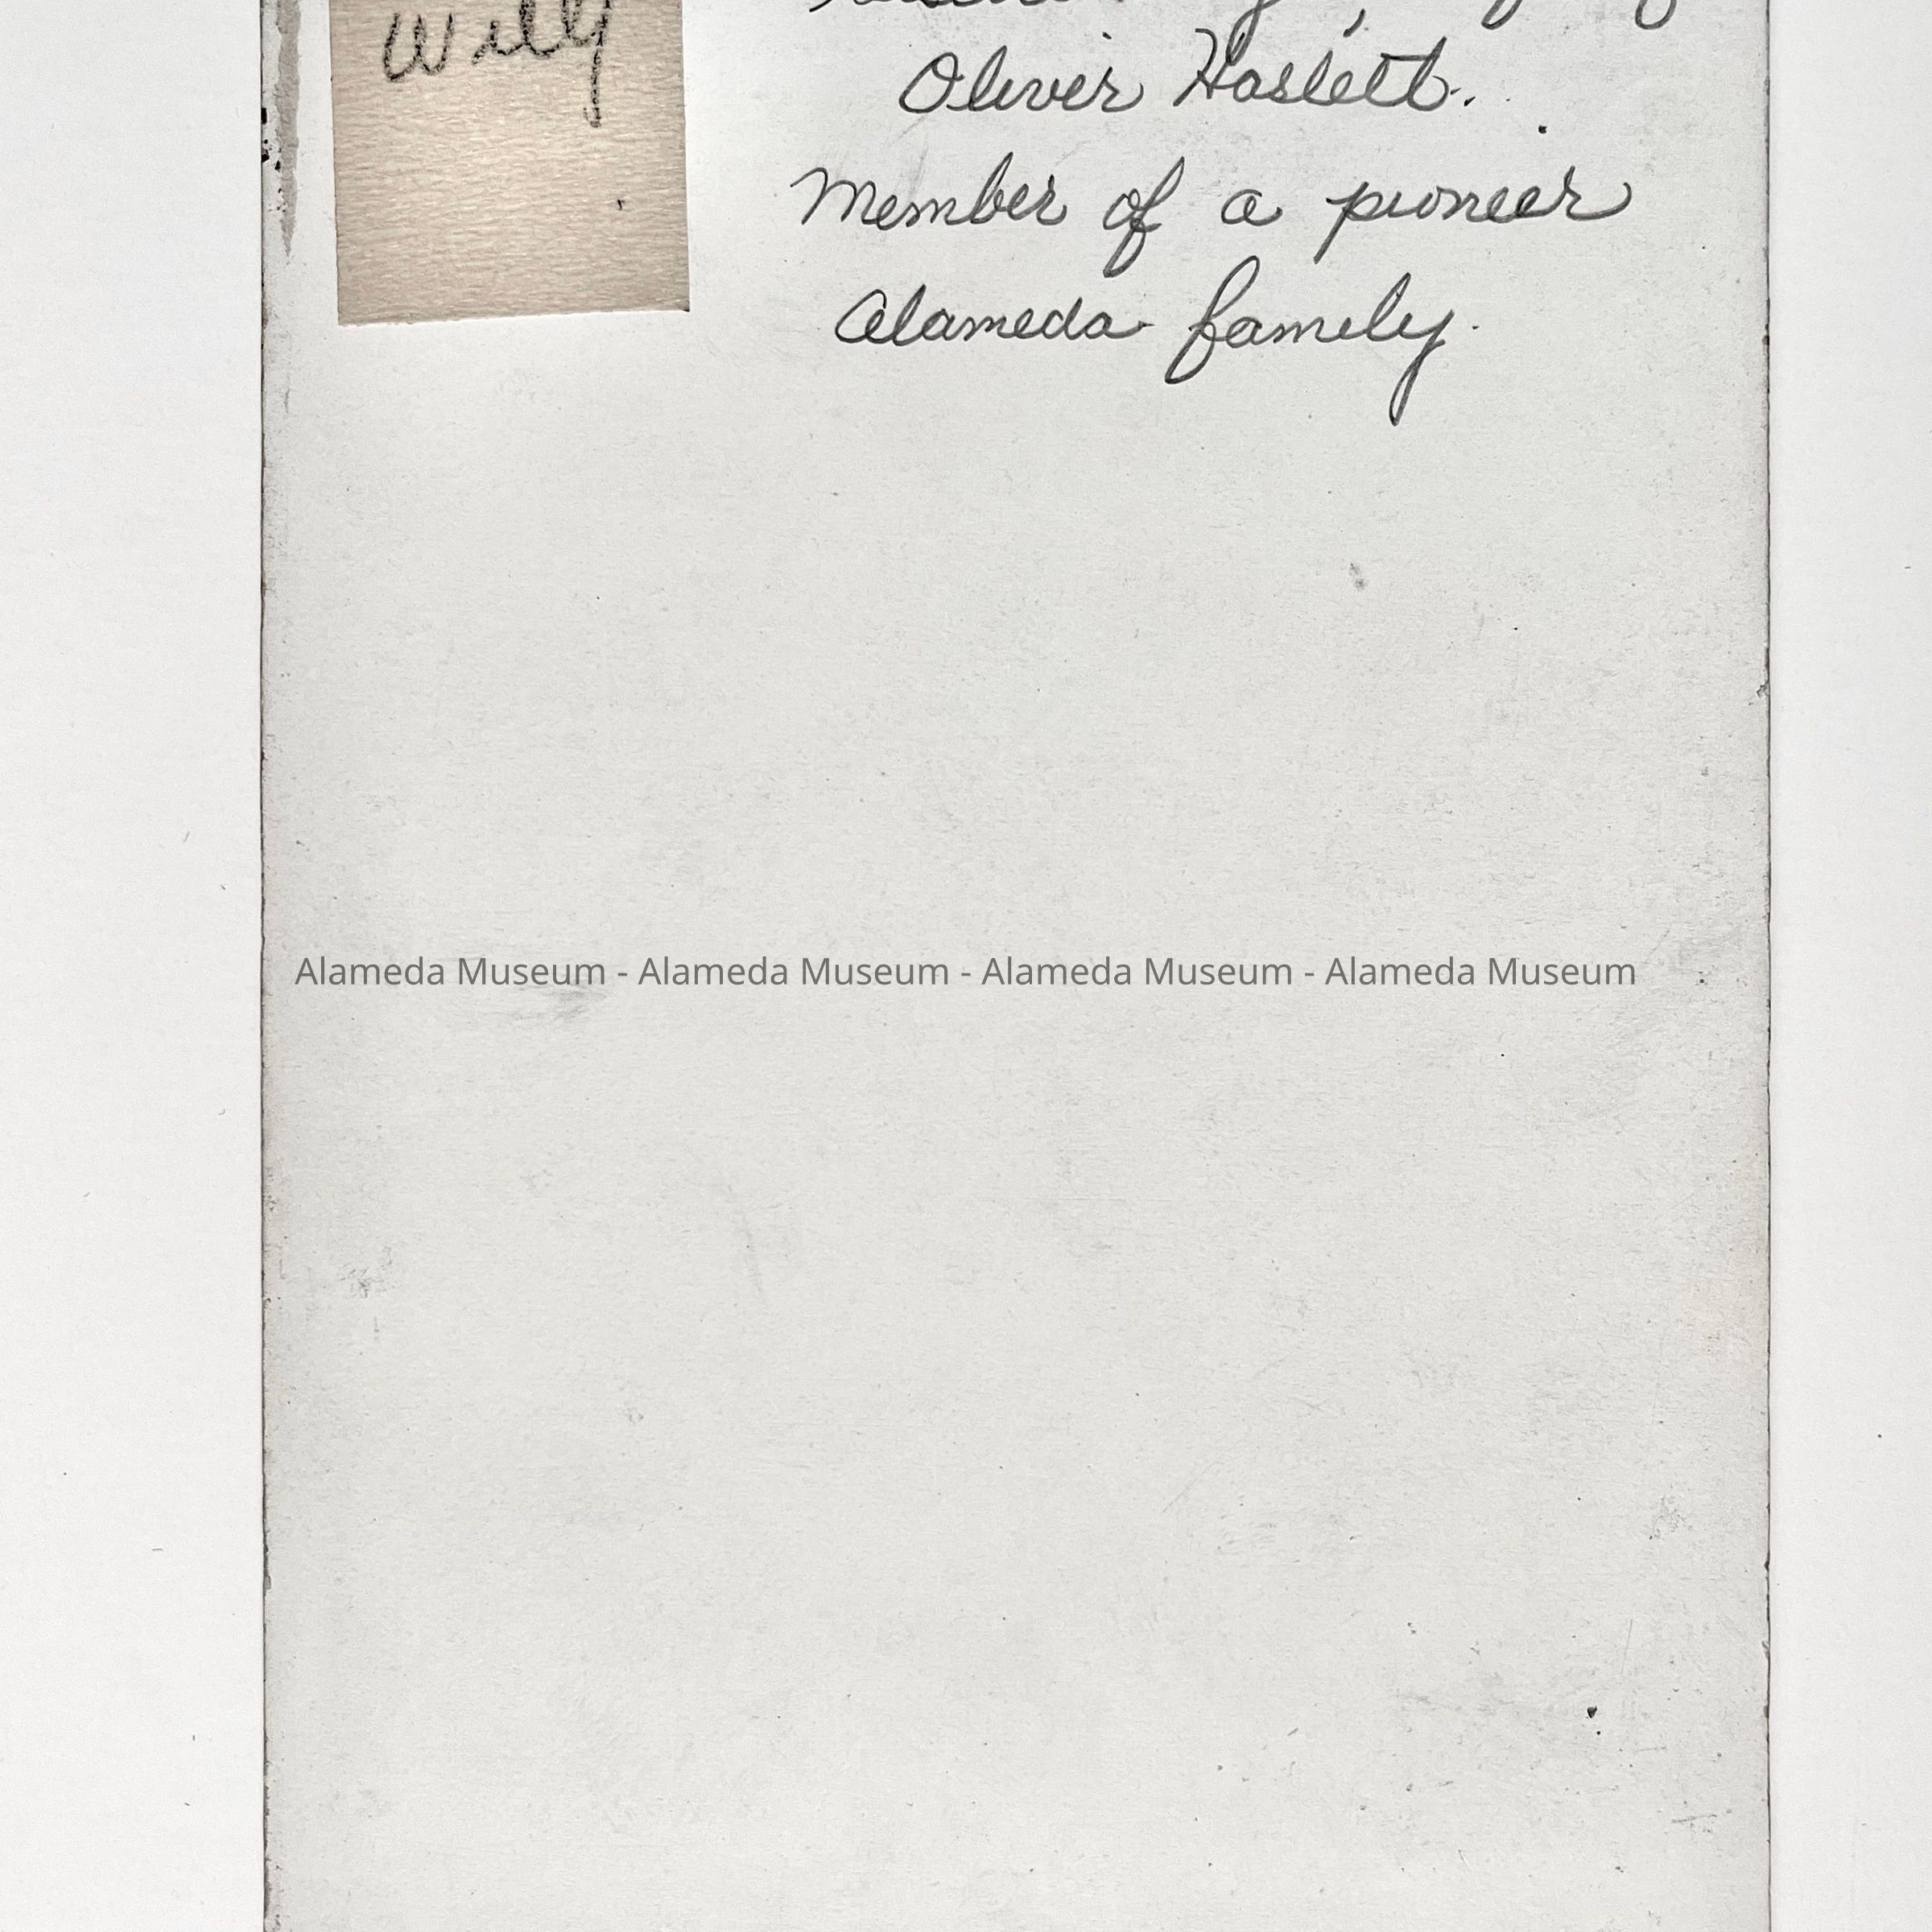 Willy
Oliver Haslett.
Member of a pioneer
Alameda family.
Alameda Museum - Alameda Museum - Alameda Museum - Alameda Museum